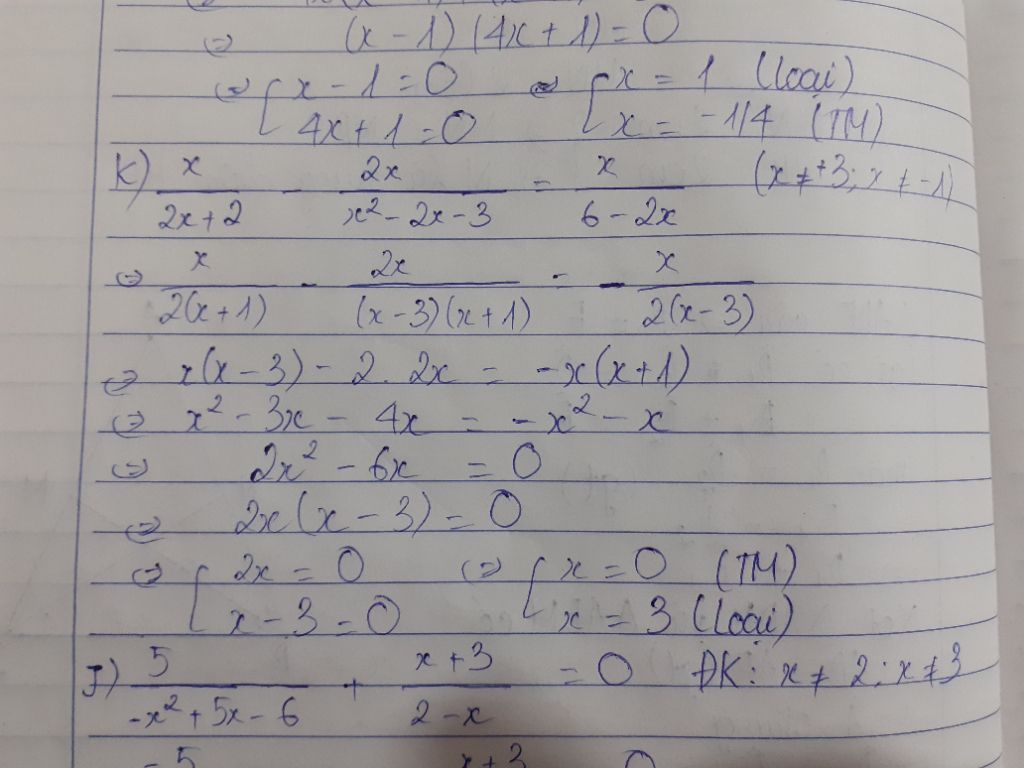 ⇔ (x - 1)(4x + 1) = 0
⇔ [ x - 1 = 0 ⇔ [ x = 1 (loại)
4x + 1 = 0 x = -1/4 (TM)
K) x/(2x + 2) - 2x/(x² - 2x - 3) = x/(6 - 2x) (x ≠ +3; x ≠ -1)
⇔ x/(2(x + 1)) - 2x/((x - 3)(x + 1)) = - x/(2(x - 3))
⇔ x(x - 3) - 2. 2x = -x(x + 1)
⇔ x² - 3x - 4x = -x² - x
⇔ 2x² - 6x = 0
⇔ 2x(x - 3) = 0
⇔ [ 2x = 0 ⇔ [ x = 0 (TM)
x - 3 = 0 x = 3 (loại)
J) 5/(-x² + 5x - 6) + (x + 3)/(2 - x) = 0 ĐK: x ≠ 2; x ≠ 3
-5 x + 3 0